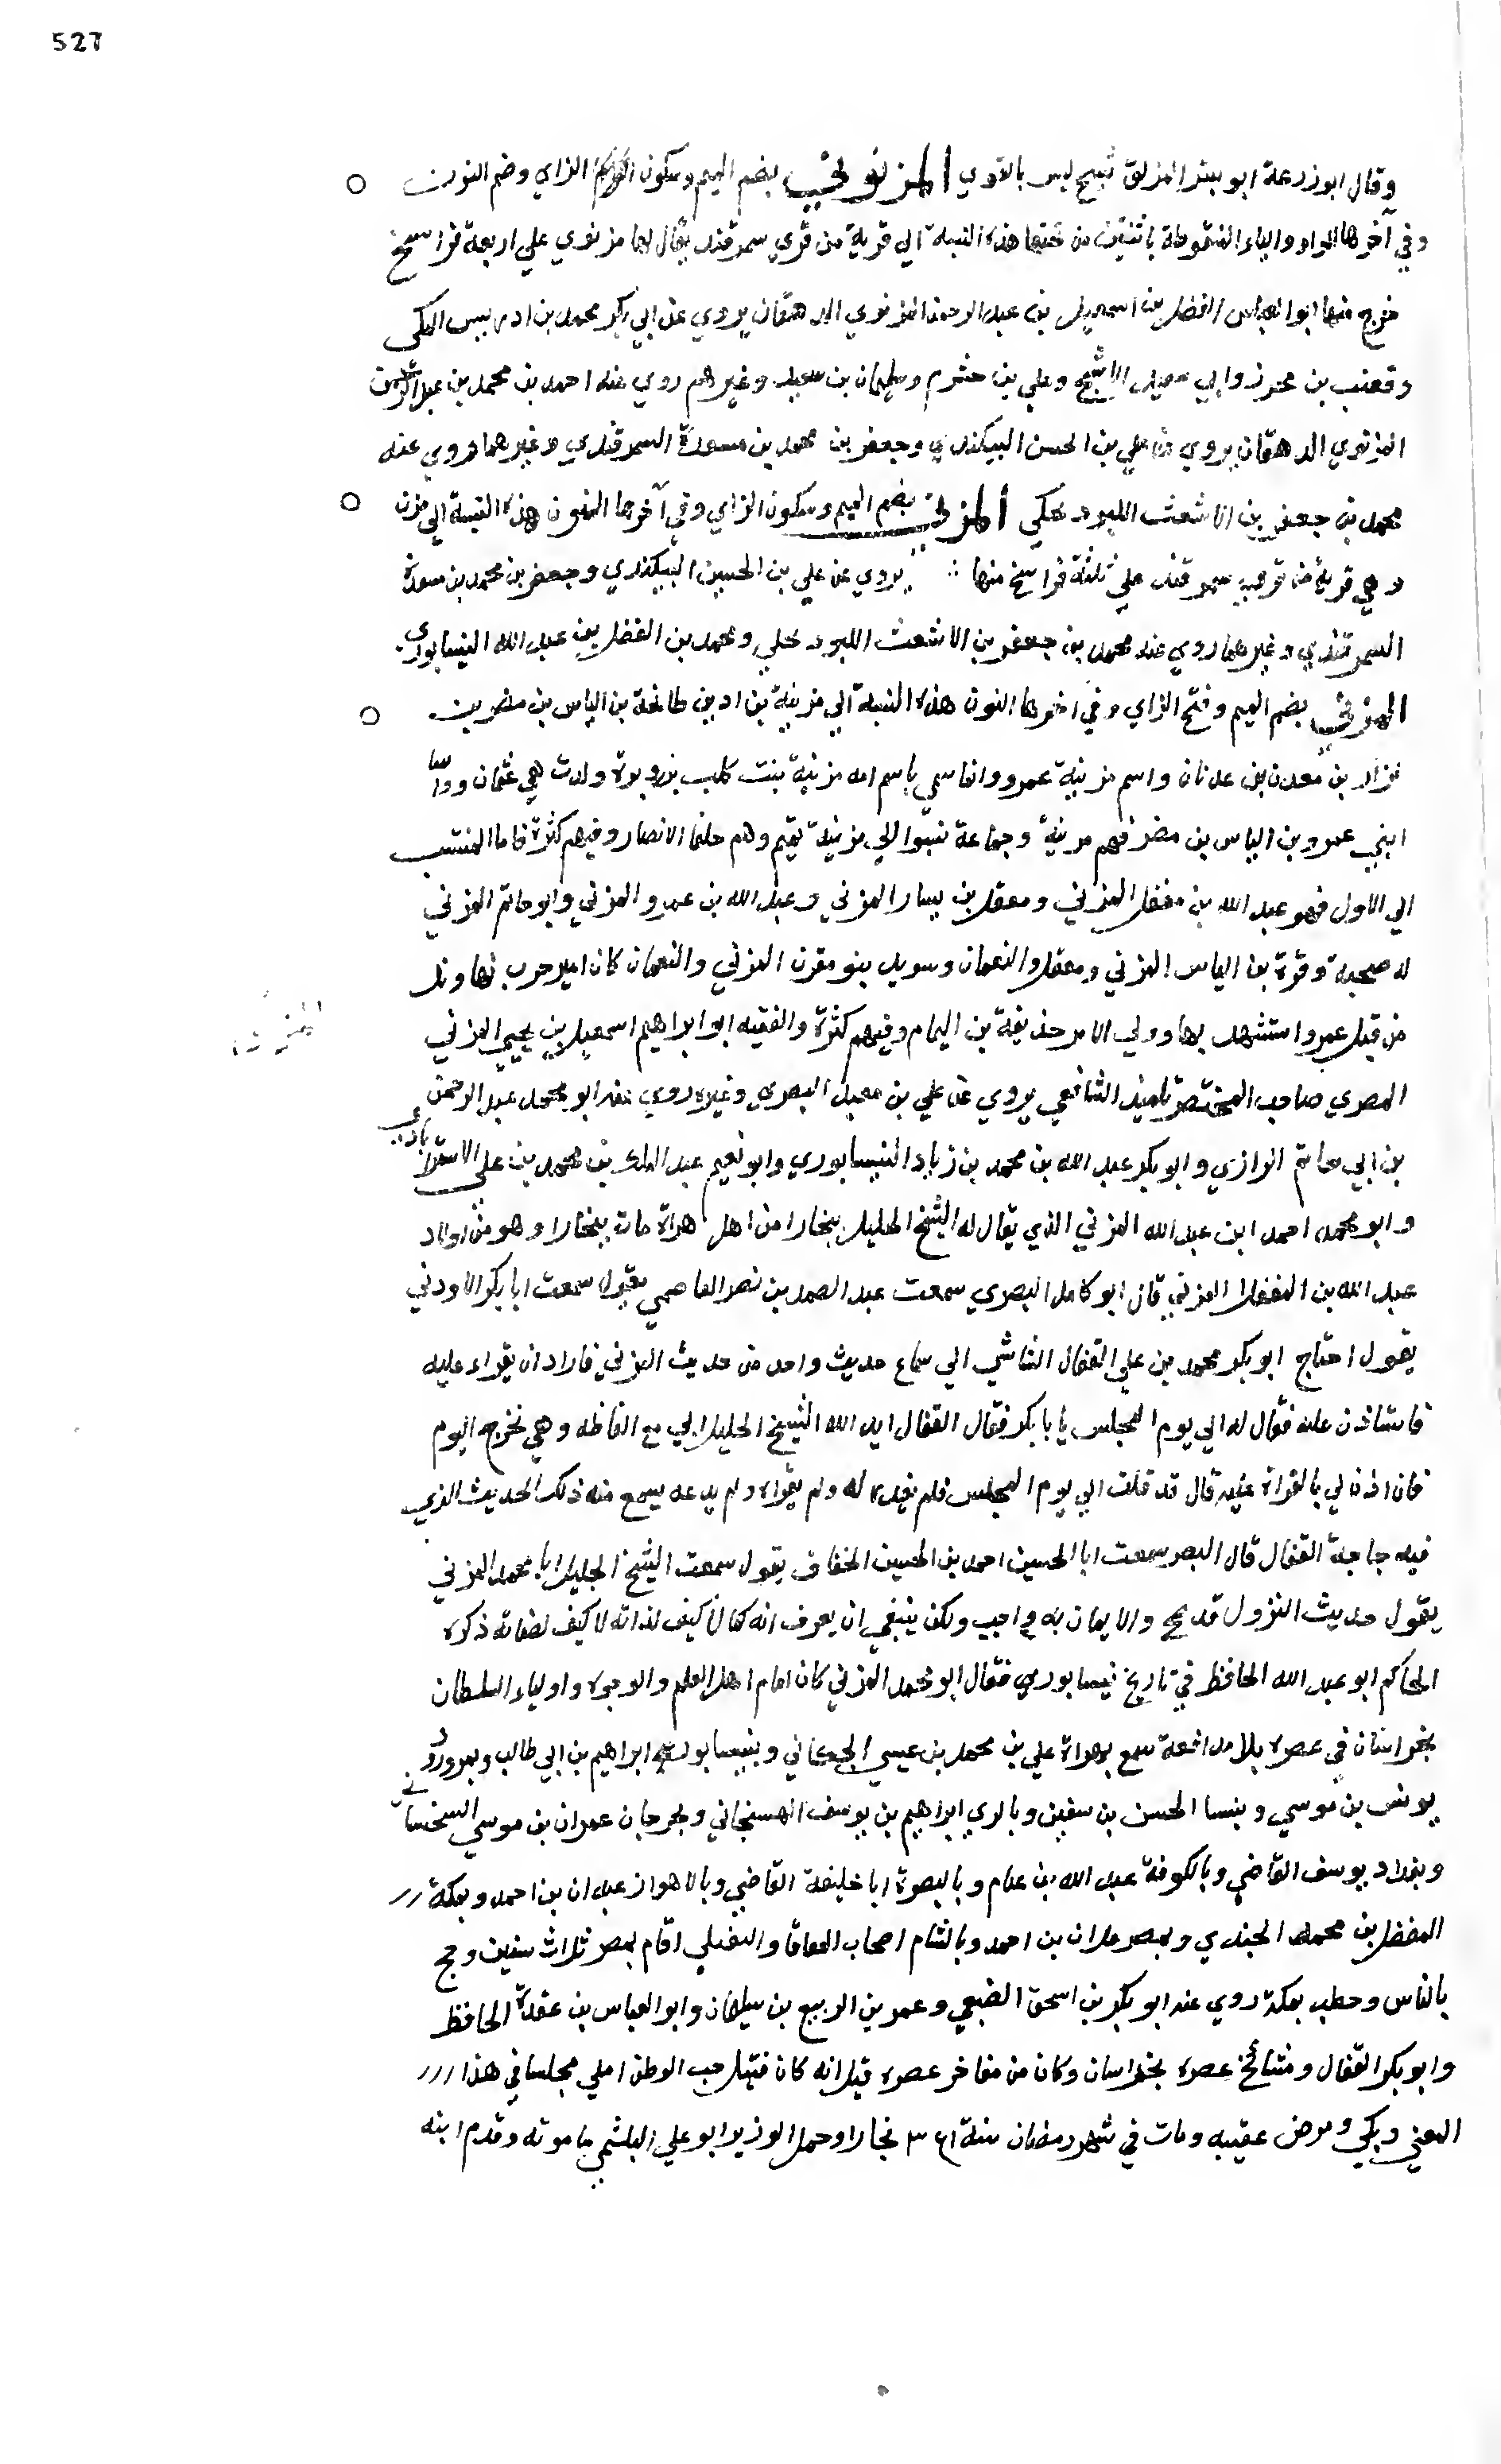 527
وقال ابو زرعة ابو بشر المزلق شيخ ليس بالقوي المزنوي بضم الميم وسكون الزاي وضم النون
وفي آخرها الواو والياء المنقوطة باثنتين من تحتها هذه النسبة الي قرية من قري سمرقند يقال لها مزنوي علي اربعة فراسخ
خرج منها ابو العباس الفضل بن اسمعيل بن عبد الرحمن المزنوي الدهقان يروي عن ابي بكر محمد بن ادريس المكي
وقعنب بن محرز وابي سعيد الاشج وعلي بن خشرم وسليمان بن معبد وغيرهم روي عنه احمد بن محمد بن عبد الرحمن
المزنوي الدهقان يروي عن علي بن الحسن البيكندي وجعفر بن محمد بن مسعدة السمرقندي وغيرهما روي عنه
محمد بن جعفر بن الاشعث اللبود المزني بضم الميم وسكون الزاي وفي آخرها النون هذه النسبة الي مزن
وهي قرية من قري سمرقند علي ثلثة فراسخ منها ∴ يروي عن علي بن الحسين البيكندي وجعفر بن محمد بن مسعدة
السمرقندي وغيرهما روي عنه محمد بن جعفر بن الاشعث اللبود ومحمد بن الفضل بن عبد الله النيسابوري
المزني بضم الميم وفتح الزاي وفي اخرها النون هذه النسبة الي مزينة بن اد بن طابخة بن الياس بن مضر بن
نزار بن معد بن عدنان واسم مزينة عمرو وانما سمي باسم امه مزينة بنت كلب بن وبرة ولدت هي عثمان واوسا
ابني عمرو بن الياس بن مضر فهم مزينة وجماعة نسبوا الي مزينة تقيم وهم حلفا الانصار وفيهم كثرة فاما المنتسب
الي الاول فهو عبد الله بن مغفل المزني ومعقل بن يسار المزني وعبد الله بن عمرو المزني وابو حاتم المزني
له صحبة وقرة بن اياس المزني ومعقل والنعمان وسويد بنو مقرن المزني والنعمان كان امير حرب نهاوند
من قبل عمر واستشهد بها وولي الامر حذيفة بن اليمام وفيهم كثرة والفقيه ابو ابراهيم اسمعيل بن يحيي المزني
المصري صاحب المختصر تلميذ الشافعي يروي عن علي بن معبد البصري وغيره روي عنه ابو محمد عبد الرحمن
بن ابي حاتم الرازي وابو بكر عبد الله بن محمد بن زياد النيسابوري وابو نعيم عبد الملك بن محمد بن علي الاستراباذي
وابو محمد احمد ابن عبد الله المزني الذي يقال له الشيخ الجليل ببخارا من اهل هراة مات ببخارا وهو من اولاد
عبد الله بن المغفل المزني قال ابو كامل البصري سمعت عبد الصمد بن نصر العاصمي يقول سمعت ابا بكر الاودني
يقول احتاج ابو بكر محمد بن علي القفال الشاشي الي سماع حديث واحد من حديث المزني فاراد ان يقراء عليه
فاستاذن عليه فقال له الي يوم المجلس يا با بكر فقال القفال ايد الله الشيخ الجليل ابي مع القافله وهي تخرج اليوم
فان اذن لي بالقراة عليه قال قد قلت الي يوم المجلس فلم يعده له ولم يقراه ولم يدعه يسمع منه ذلك الحديث الذي
فيه حاجة القفال قال البصر سمعت ابا الحسين احمد بن الحسين الخفاف يقول سمعت الشيخ الجليل ابا محمد المزني
يقول حديث النزول قد صح والايمان به واجب ولكن ينبغي ان يعرف انه كما لا كيف لذاته لا كيف لصفاته ذكره
الحاكم ابو عبد الله الحافظ في تاريخ نيسابوري فقال ابو محمد المزني كان امام اهل العلم والوجوه واولياء السلطان
بخراسان في عصره بلا مدافعة سمع بهراة علي بن محمد بن عيسي الجكاني وبنيسابور ابراهيم بن ابي طالب وبمروروذ
يونس بن موسي وبنسا الحسن بن سفين وبالري ابراهيم بن يوسف الهسنجاني وبجرجان عمران بن موسي السختياني
وبغداد يوسف القاضي وبالكوفة عبد الله بن غنام وبالبصرة ابا خليفة القاضي وبالاهواز عبدان بن احمد وبمكة
المفضل بن محمد الجندي وبمصر علان بن احمد وبالشام اصحاب المعافا والنفيلي اقام بمصر ثلاث سنين وحج
بالناس وخطب بمكة روي عنه ابو بكر بن اسحق الضبعي وعمر بن الربيع بن سليمان وابو العباس بن عقدة الحافظ
وابو بكر القفال ومشائخ عصره بخراسان وكان من مفاخر عصره قيل انه كان قتيل حب الوطن املي مجلسا في هذا
المعني وبكي ومرض عقيبه ومات في شهر رمضان سنة ٣٥٦ بخارا وحمل الوزير ابو علي البلعمي تابوته وقدم ابنه